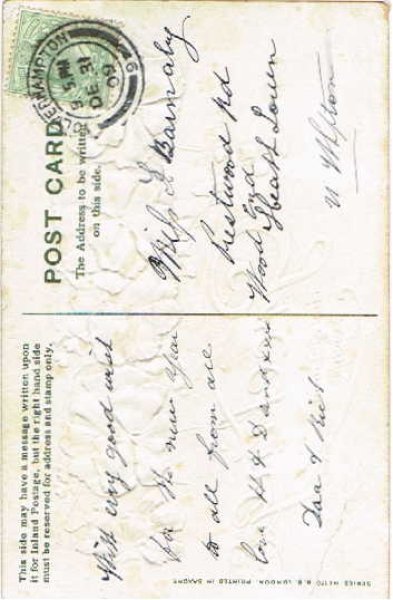 This side may have a message written upon
it for Inland Postage, but the right hand side
must be reserved for address and stamp only.
With very good wish
for the new year
to all from all
love
POST CARD
The Address to be written
on this side.
WOLVERHAMPTON
5 PM
DE 31
09
Miss L Barnaby
Prestwood Rd
Wood End
Heath Town
PRINTED IN SAXONY
LONDON